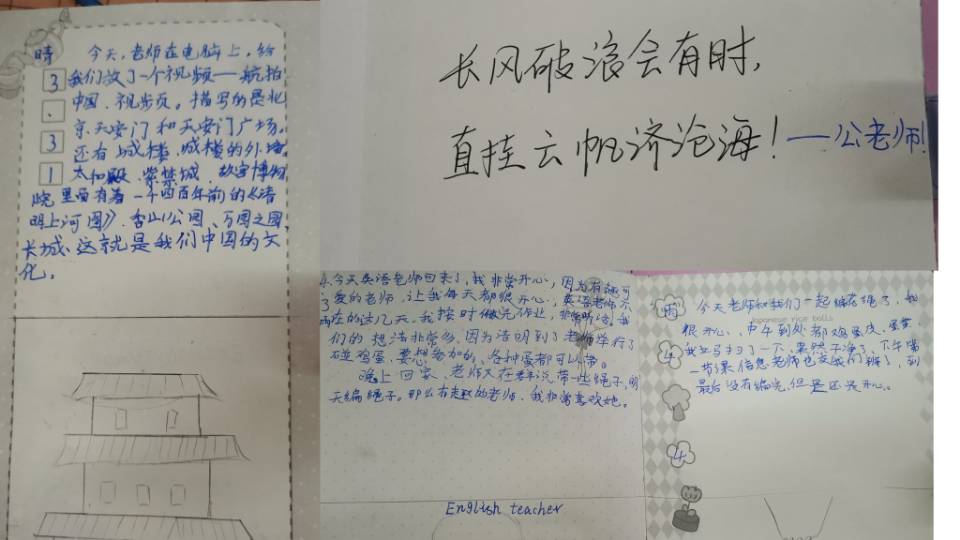 晴 今天,老师在电脑上,给
3 我们放了一个视频——航拍
、 中国、视步页。描写的是北
3 京天安门和天安门广场。
还有城楼、城楼的外墙
1 太和殿、紫禁城、故宫博物
院里面有着一千四百年前的《清
明上河图》、香山公园、万园之园、
长城、这就是我们中国的文
化。
长风破浪会有时,
直挂云帆济沧海!——公老师!
今天英语老师回来了,我非常开心,因为有趣可
爱的老师,让我每天都很开心,英语老师不
在的这几天,我按时做完作业,非常听话。我
们的想法非常多,因为清明到了老师举行了
碰鸡蛋、要想参加的、各种蛋都可以带。
晚上回家、老师又在群说带一些绳子,明
天编绳子。那么有趣的老师、我非常喜欢她。
English teacher
今天老师和我们一起编花绳了,我
Japanese rice balls
很开心、中午到处都鸡蛋皮、蛋黄,
我立马扫了一下、果然干净了、下午第
一节课信息老师也交我们编了,到
4 最后没有编完,但是还是开心。
4